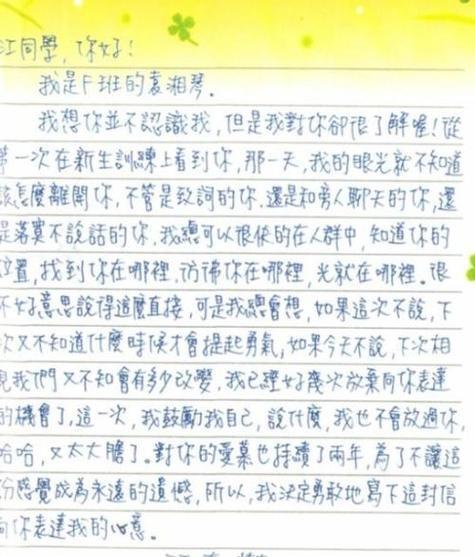 江同學,你好!
我是F班的袁湘琴。
我想你並不認識我,但是我對你卻很了解喔!從
第一次在新生訓練上看到你,那一天,我的眼光就不知道
該怎麼離開你,不管是致詞的你,還是和旁人聊天的你,還
是落寞不說話的你,我總可以很快的在人群中,知道你的
位置,找到你在哪裡,彷彿你在哪裡,光就在哪裡。很
不好意思說得這麼直接,可是我總會想,如果這次不說,下
次又不知道什麼時候才會提起勇氣,如果今天不說,下次相
見我們又不知會有多少改變,我已經好幾次放棄向你表達
的機會了,這一次,我鼓勵我自己,說什麼,我也不會放過你,
哈哈,又太大膽了。對你的愛慕也持續了兩年,為了不讓這
份感覺成為永遠的遺憾,所以,我決定勇敢地寫下這封信
向你表達我的心意。